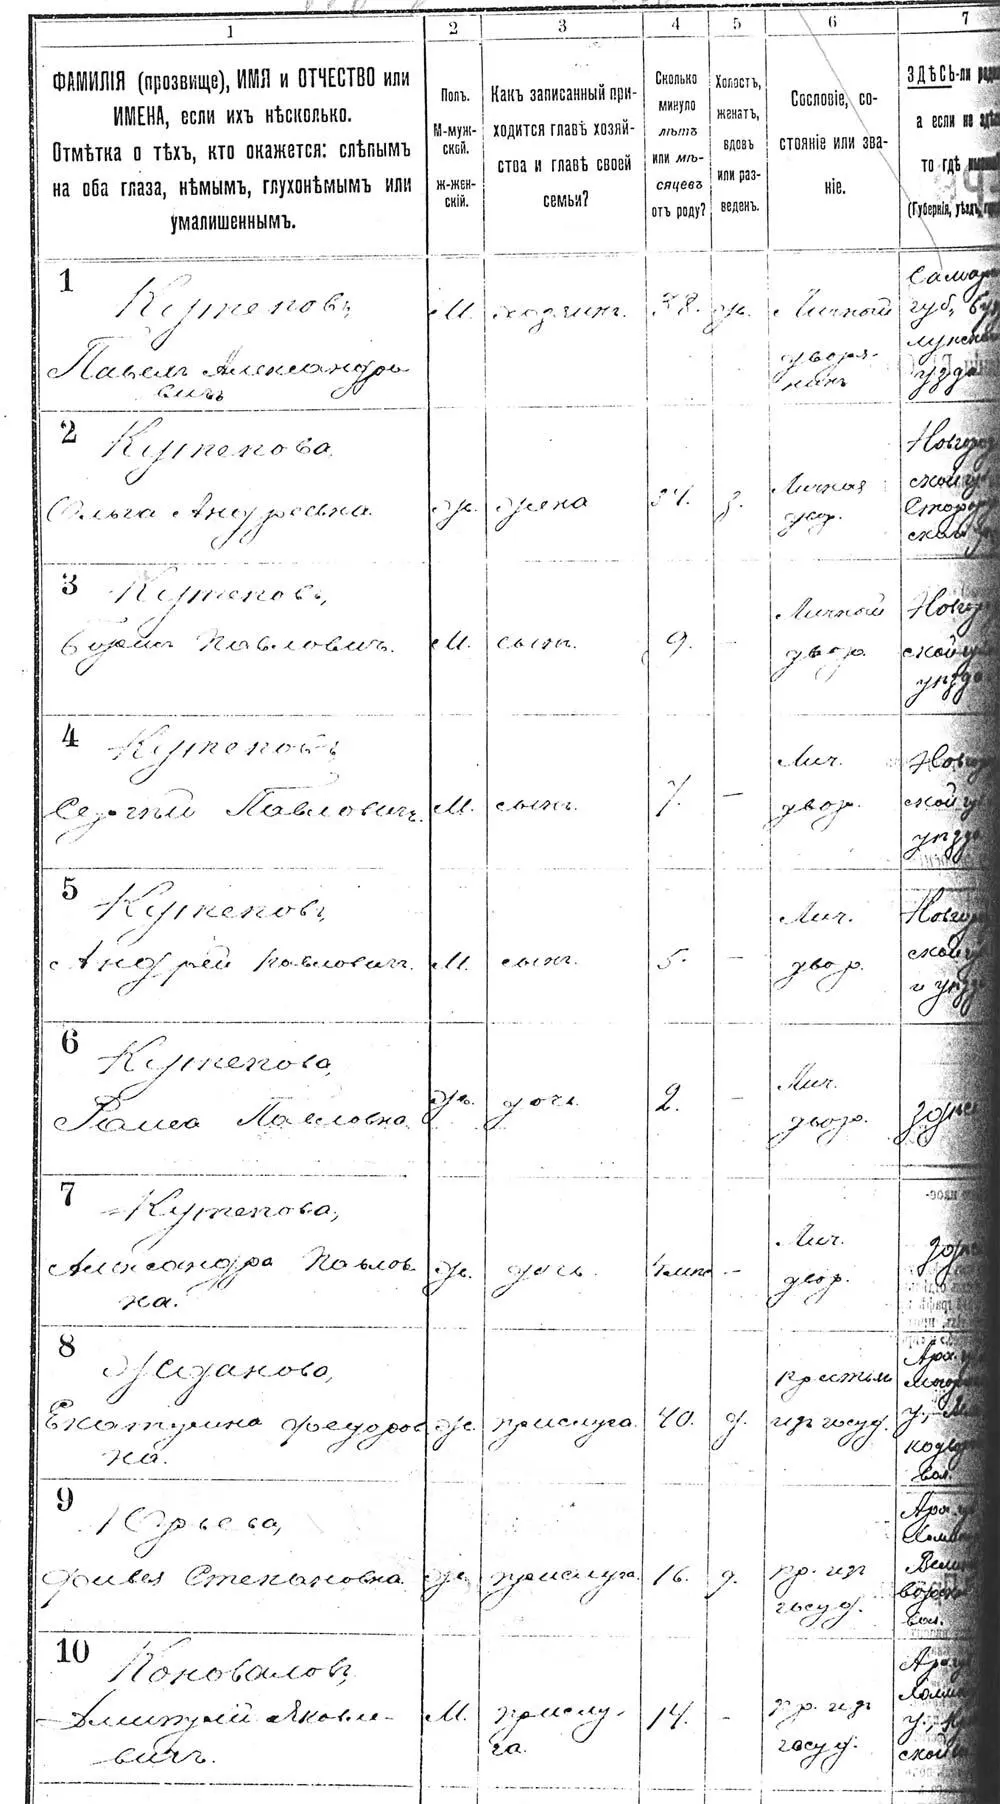 1
2
3
4
5
6
7
ФАМИЛІЯ (прозвище), ИМЯ и ОТЧЕСТВО или
ИМЕНА, если ихъ нѣсколько.
Отмѣтка о тѣхъ, кто окажется: слѣпымъ
на оба глаза, нѣмымъ, глухонѣмымъ или
умалишеннымъ.
Полъ.
М-муж-
ской.
ж-жен-
скій.
Какъ записанный при-
ходится главѣ хозяй-
ства и главѣ своей
семьи?
Сколько
минуло
лѣтъ
или мѣ-
сяцевъ
отъ роду?
Холостъ,
женатъ,
вдовъ
или раз-
веденъ.
Сословіе, со-
стояніе или зва-
ніе.
ЗДѢСЬ-ли
а если не
то гдѣ
(Губернія, уѣздъ,
1
Кутеповъ,
Павелъ Александро-
вичъ
М.
хозяинъ.
38.
ж.
Личный
дворя-
нинъ
губ.,
2
Кутепова
Ольга Андреевна
ж.
жена
34.
з.
Личная
двор.
Новгород
ской
3
Кутеповъ,
Борисъ Павловичъ.
М.
сынъ.
9.
-
Личный
двор.
Новгор
ской
уѣзда
4
Кутеповъ
Сергѣй Павловичъ.
М.
сынъ.
7.
-
Лич.
двор.
Новгор
ской
уѣзда
5
Кутеповъ,
Андрей Павловичъ.
М.
сынъ.
5.
-
Лич.
двор.
Новгор
ской
и уѣзда
6
Кутепова,
Раиса Павловна
ж.
дочь.
2.
-
Лич.
двор.
здѣсь
7
Кутепова,
Александра Павлов-
на.
ж.
дочь.
-
Лич.
двор.
здѣсь
8
Жданова,
Екатерина Федоров
на.
ж.
прислуга
40.
д.
изъ госуд.
вол.
9
Юрьева,
Степановна
ж.
прислуга
16.
д.
кр. изъ
госуд.
вол.
10
Коноваловъ,
Дмитрій Яковле-
вичъ.
М.
прислу-
га.
14.
-
кр. изъ
госуд.